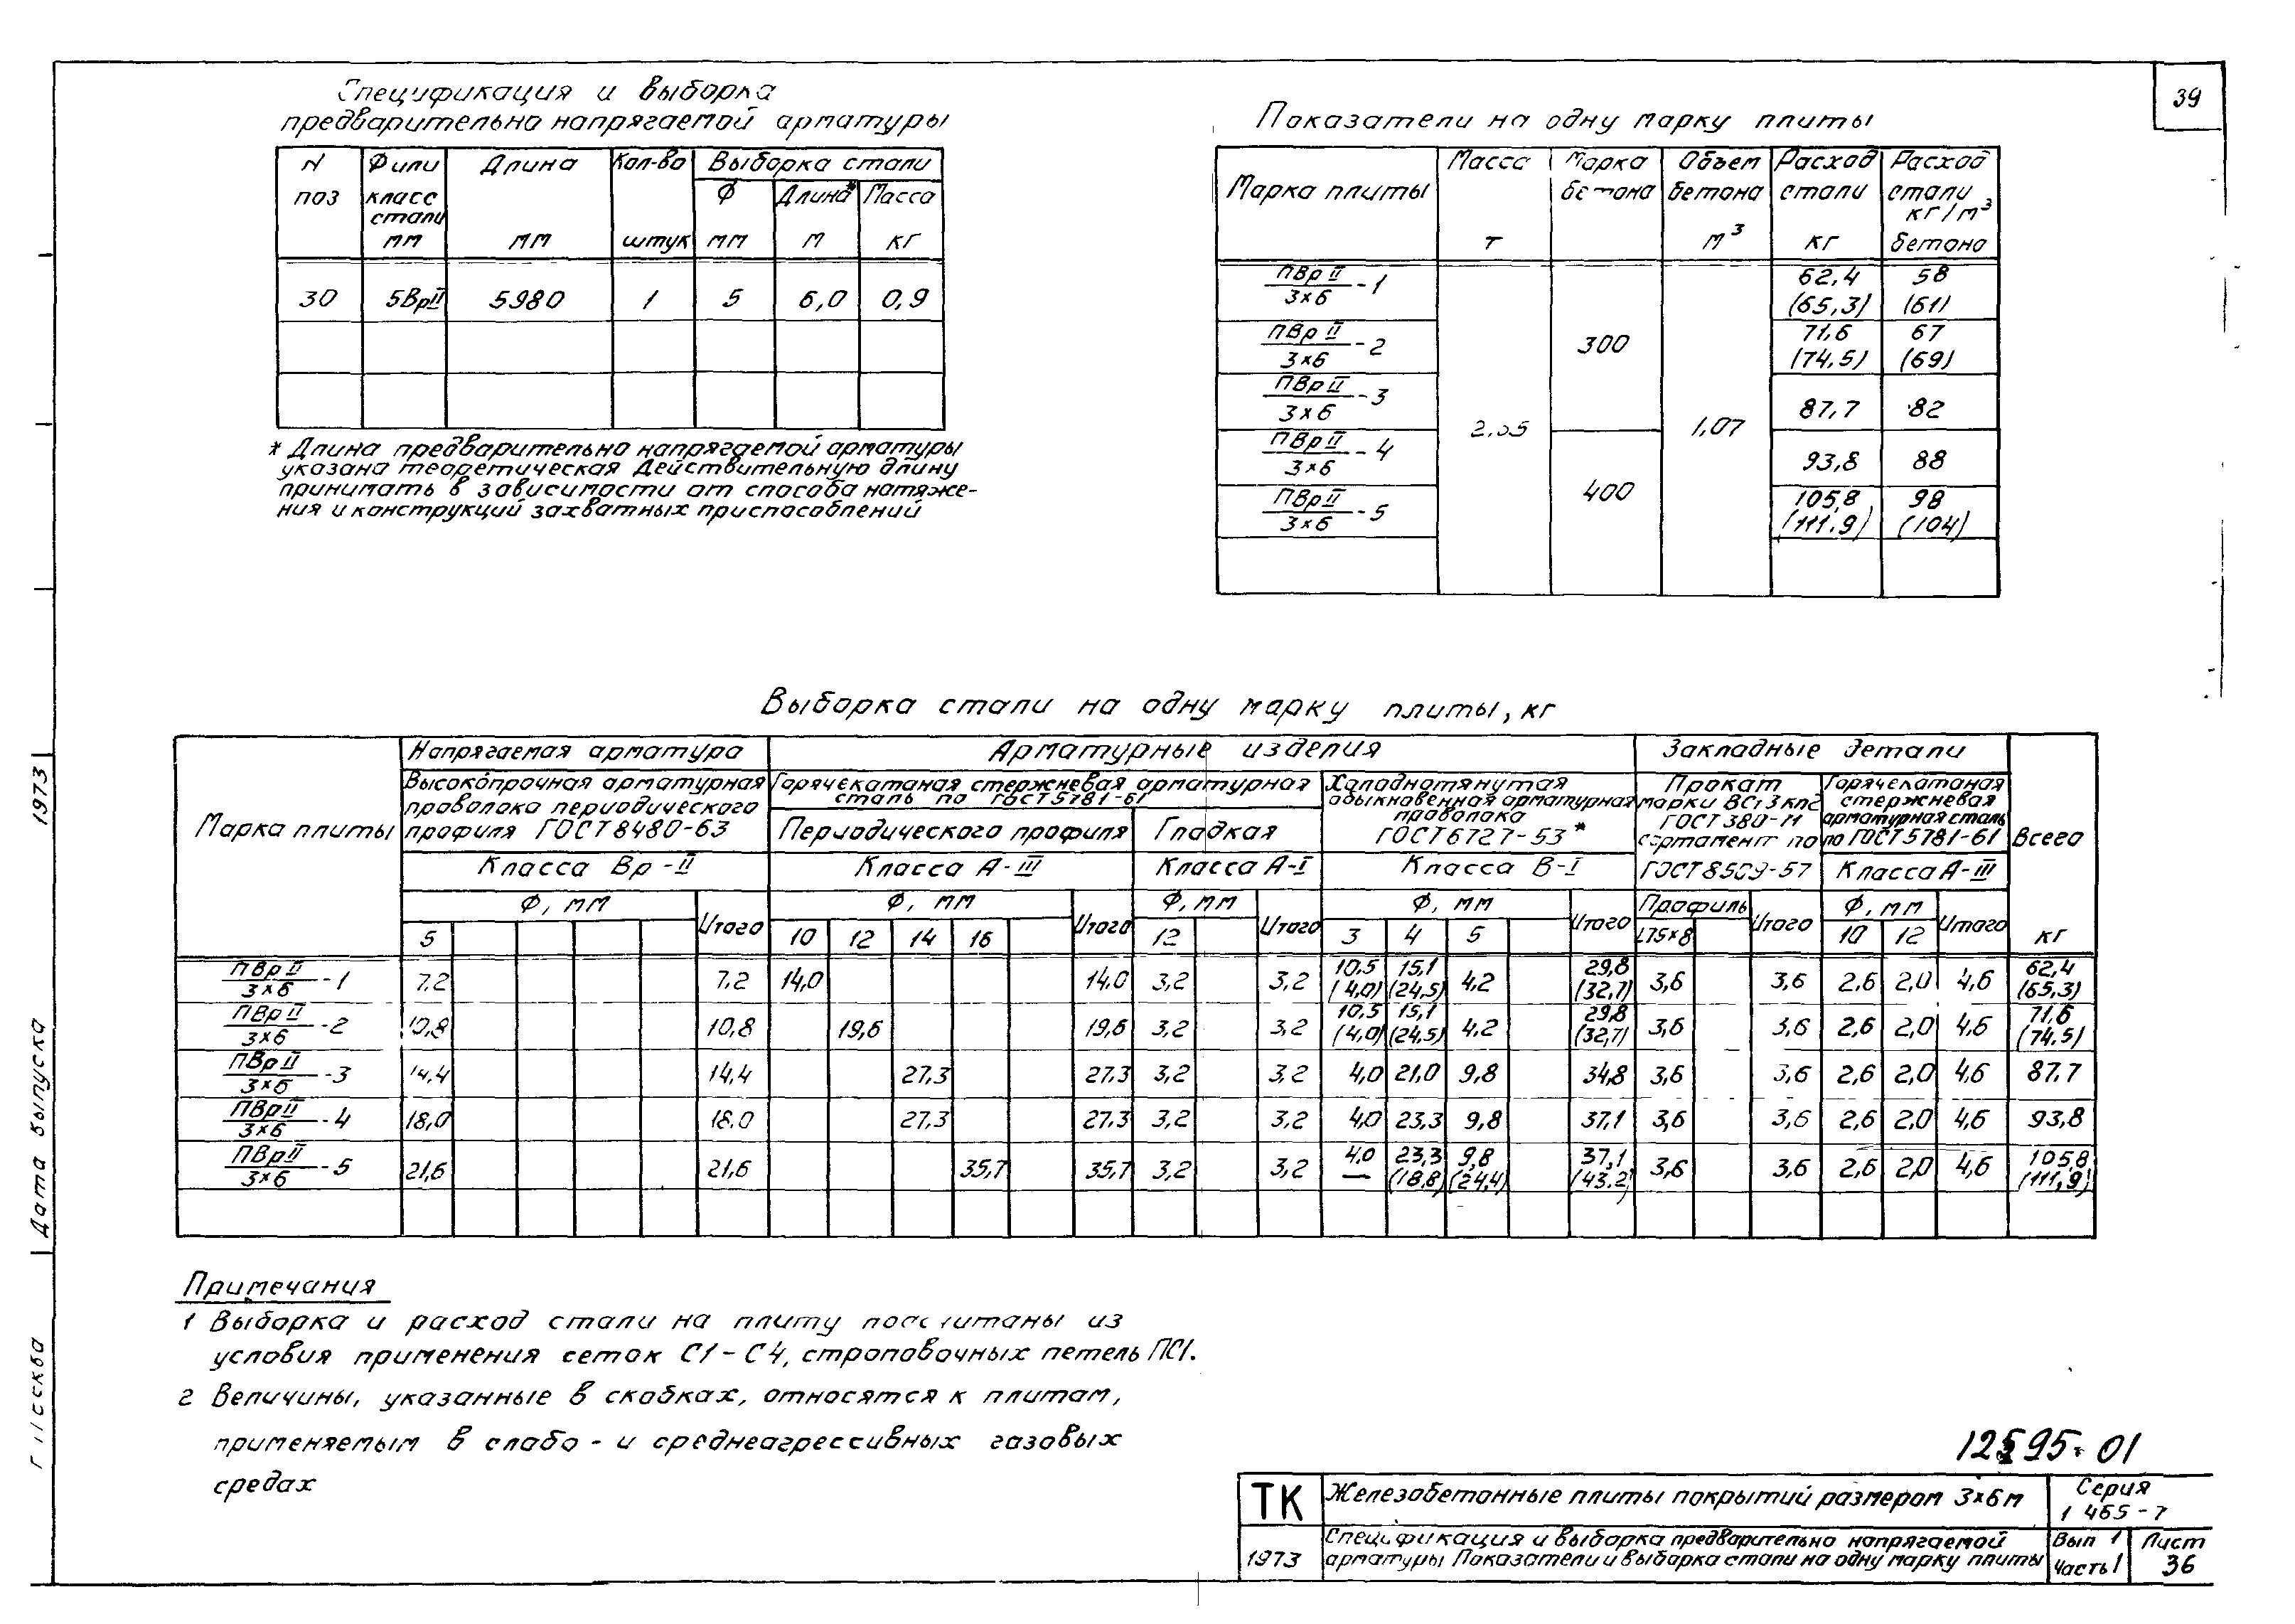 39
Спецификация и выборка
предварительно напрягаемой арматуры
N поз | Ф или класс стали мм | Длина мм | Кол-во штук | Выборка стали
Ф мм | Длина* м | Масса кг
30 | 5ВрII | 5980 | 1 | 5 | 6,0 | 0,9
* Длина предварительно напрягаемой арматуры
указана теоретическая Действительную длину
принимать в зависимости от способа натяже-
ния и конструкций захватных приспособлений
Показатели на одну марку плиты
Марка плиты | Масса т | Марка бетона | Объем бетона м³ | Расход стали кг | Расход стали кг/м³ бетона
ПВрII/3×6-1 | 62,4 (65,3) | 58 (61)
ПВрII/3×6-2 | 300 | 71,6 (74,5) | 67 (69)
ПВрII/3×6-3 | 1,07 | 87,7 | 82
ПВрII/3×6-4 | 93,8 | 88
ПВрII/3×6-5 | 400 | 105,8 (111,9) | 98 (104)
Выборка стали на одну марку плиты, кг
Марка плиты | Напрягаемая арматура | Арматурные изделия | Закладные детали | Всего кг
Высокопрочная арматурная проволока периодического профиля ГОСТ 8480-63 | Горячекатаная стержневая арматурная сталь по ГОСТ 5781-61 | Холоднотянутая обыкновенная арматурная проволока ГОСТ 6727-53* | Прокат марки ВСт3кп2 ГОСТ 380-71 сортамент по ГОСТ 8509-57 | Горячекатаная стержневая арматурная сталь по ГОСТ 5781-61
Периодического профиля | Гладкая
Класса Вр-II | Класса А-III | Класса А-I | Класса В-I | Класса А-III
Ф, мм | Итого | Ф, мм | Итого | Ф, мм | Итого | Ф, мм | Итого | Профиль | Итого | Ф, мм | Итого
5 | 10 | 12 | 14 | 16 | 12 | 3 | 4 | 5 | L75×8 | 10 | 12
ПВрII/3×6-1 | 7,2 | 7,2 | 14,0 | 14,0 | 3,2 | 3,2 | 10,5 (4,0) | 15,1 (24,5) | 4,2 | 29,8 (32,7) | 3,6 | 3,6 | 2,6 | 2,0 | 4,6 | 62,4 (65,3)
ПВрII/3×6-2 | 10,8 | 10,8 | 19,6 | 19,6 | 3,2 | 3,2 | 10,5 (4,0) | 15,1 (24,5) | 4,2 | 29,8 (32,7) | 3,6 | 3,6 | 2,6 | 2,0 | 4,6 | 71,6 (74,5)
ПВрII/3×6-3 | 14,4 | 14,4 | 27,3 | 27,3 | 3,2 | 3,2 | 4,0 | 21,0 | 9,8 | 34,8 | 3,6 | 3,6 | 2,6 | 2,0 | 4,6 | 87,7
ПВрII/3×6-4 | 18,0 | 18,0 | 27,3 | 27,3 | 3,2 | 3,2 | 4,0 | 23,3 | 9,8 | 37,1 | 3,6 | 3,6 | 2,6 | 2,0 | 4,6 | 93,8
ПВрII/3×6-5 | 21,6 | 21,6 | 35,7 | 35,7 | 3,2 | 3,2 | 4,0 — | 23,3 (18,8) | 9,8 (24,4) | 37,1 (43,2) | 3,6 | 3,6 | 2,6 | 2,0 | 4,6 | 105,8 (111,9)
Примечания
1 Выборка и расход стали на плиту подсчитаны из
условия применения сеток С1-С4, строповочных петель ПС1.
2 Величины, указанные в скобках, относятся к плитам,
применяемым в слабо- и среднеагрессивных газовых
средах
ТК | Железобетонные плиты покрытий размером 3×6м | Серия 1 465-7
1973 | Спецификация и выборка предварительно напрягаемой
арматуры Показатели и выборка стали на одну марку плиты | Вып 1 Часть 1 | Лист 36
г Москва | Дата выпуска | 1973